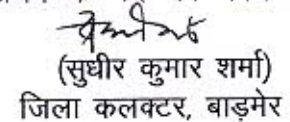 (सुधीर कुमार शर्मा)
जिला कलक्टर, बाड़मेर